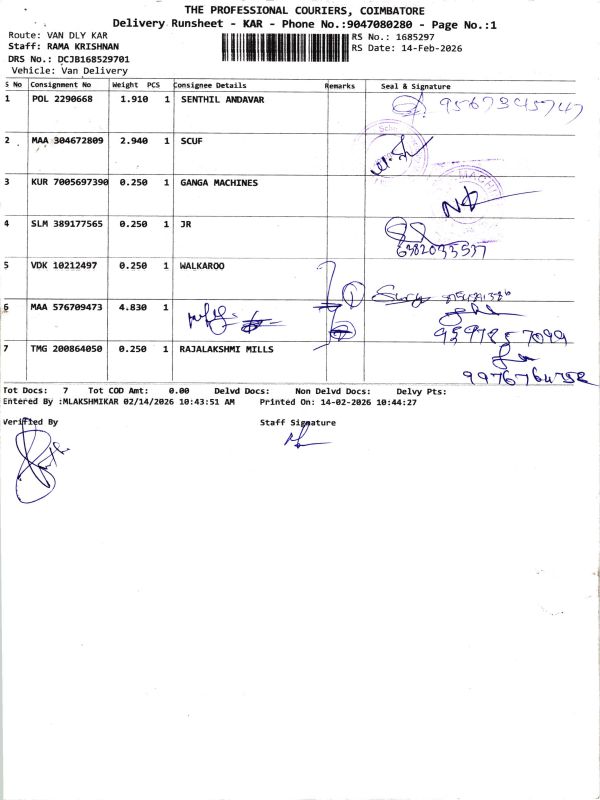 THE PROFESSIONAL COURIERS, COIMBATORE
Delivery Runsheet - KAR - Phone No.:9047080280 - Page No.:1
Route: VAN DLY KAR
RS No.: 1685297
Staff: RAMA KRISHNAN
RS Date: 14-Feb-2026
DRS No.: DCJB168529701
Vehicle: Van Delivery
S No Consignment No Weight PCS Consignee Details Remarks Seal & Signature
1 POL 2290668 1.910 1 SENTHIL ANDAVAR
2 MAA 304672809 2.940 1 SCUF
3 KUR 7005697390 0.250 1 GANGA MACHINES
4 SLM 389177565 0.250 1 JR
6382033537
5 VDK 10212497 0.250 1 WALKAROO
6 MAA 576709473 4.830 1
7 TMG 200864050 0.250 1 RAJALAKSHMI MILLS
Tot Docs: 7 Tot COD Amt: 0.00 Delvd Docs: Non Delvd Docs: Delvy Pts:
Entered By :MLAKSHMIKAR 02/14/2026 10:43:51 AM Printed On: 14-02-2026 10:44:27
Verified By Staff Signature